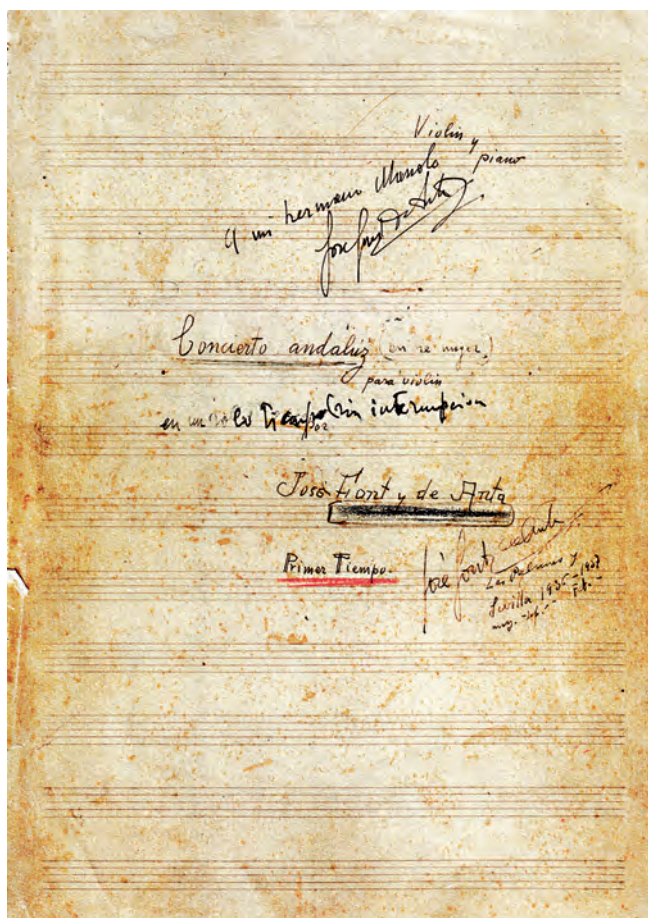 Violin y piano
A mi hermano Manolo
José Font de Anta
Concierto andalúz (en re mayor)
para violin
en un solo tiempo (sin interrupcion
José Font y de Anta
Primer Tiempo.
José Font de Anta
Las Palmas y
Sevilla 1935-1937